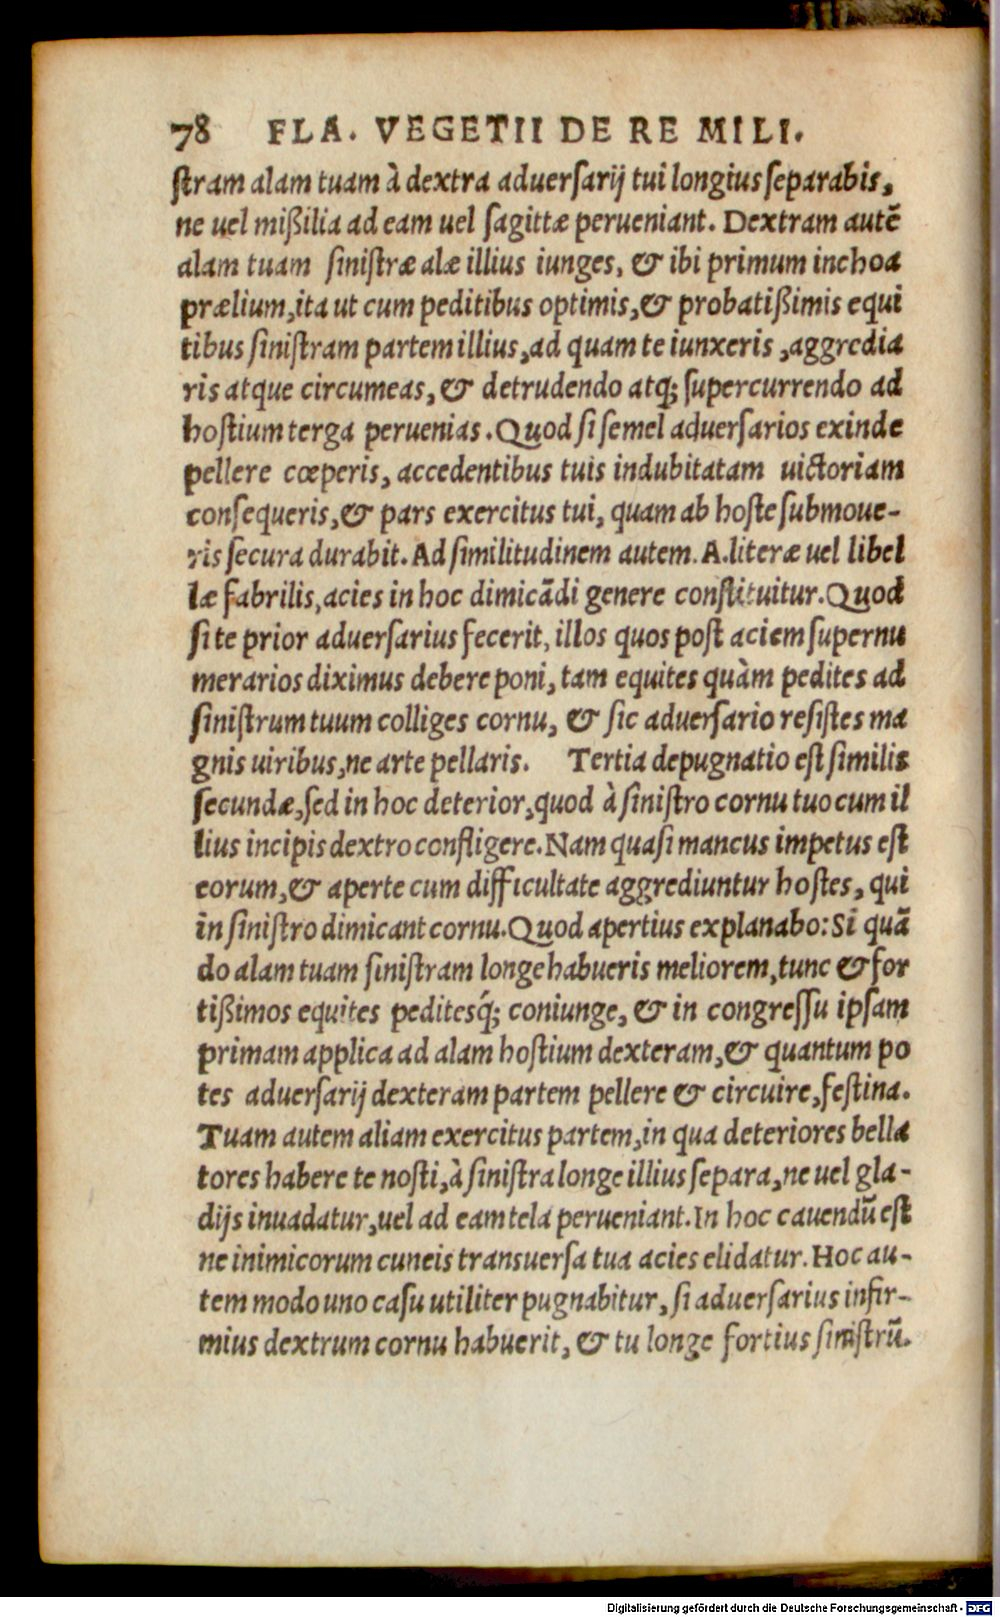 78 FLA. VEGETII DE RE MILI.
ſtram alam tuam à dextra aduerſarij tui longius ſeparabis,
ne uel mißilia ad eam uel ſagittæ perueniant. Dextram autẽ
alam tuam ſiniſtræ alæ illius iunges, & ibi primum inchoa
prælium, ita ut cum peditibus optimis, & probatißimis equi
tibus ſiniſtram partem illius, ad quam te iunxeris, aggredia
ris atque circumeas, & detrudendo atq; ſupercurrendo ad
hoſtium terga peruenias. Quod ſi ſemel aduerſarios exinde
pellere cœperis, accedentibus tuis indubitatam uictoriam
conſequeris, & pars exercitus tui, quam ab hoſte ſubmoue-
ris ſecura durabit. Ad ſimilitudinem autem. A. literæ uel libel
læ fabrilis, acies in hoc dimicãdi genere conſtituitur. Quod
ſi te prior aduerſarius fecerit, illos quos poſt aciem ſupernu
merarios diximus debere poni, tam equites quàm pedites ad
ſiniſtrum tuum colliges cornu, & ſic aduerſario reſiſtes ma
gnis uiribus, ne arte pellaris. Tertia depugnatio eſt ſimilis
ſecundæ, ſed in hoc deterior, quod à ſiniſtro cornu tuo cum il
lius incipis dextro confligere. Nam quaſi mancus impetus eſt
eorum, & aperte cum difficultate aggrediuntur hoſtes, qui
in ſiniſtro dimicant cornu. Quod apertius explanabo: Si quã
do alam tuam ſiniſtram longe habueris meliorem, tunc & for
tißimos equites peditesq́; coniunge, & in congreſſu ipſam
primam applica ad alam hoſtium dexteram, & quantum po
tes aduerſarij dexteram partem pellere & circuire, feſtina.
Tuam autem aliam exercitus partem, in qua deteriores bella
tores habere te noſti, à ſiniſtra longe illius ſepara, ne uel gla-
dijs inuadatur, uel ad eam tela perueniant. In hoc cauendũ eſt
ne inimicorum cuneis transuerſa tua acies elidatur. Hoc au-
tem modo uno caſu utiliter pugnabitur, ſi aduerſarius infir-
mius dextrum cornu habuerit, & tu longe fortius ſiniſtrũ.
Digitalisierung gefördert durch die Deutsche Forschungsgemeinschaft - DFG